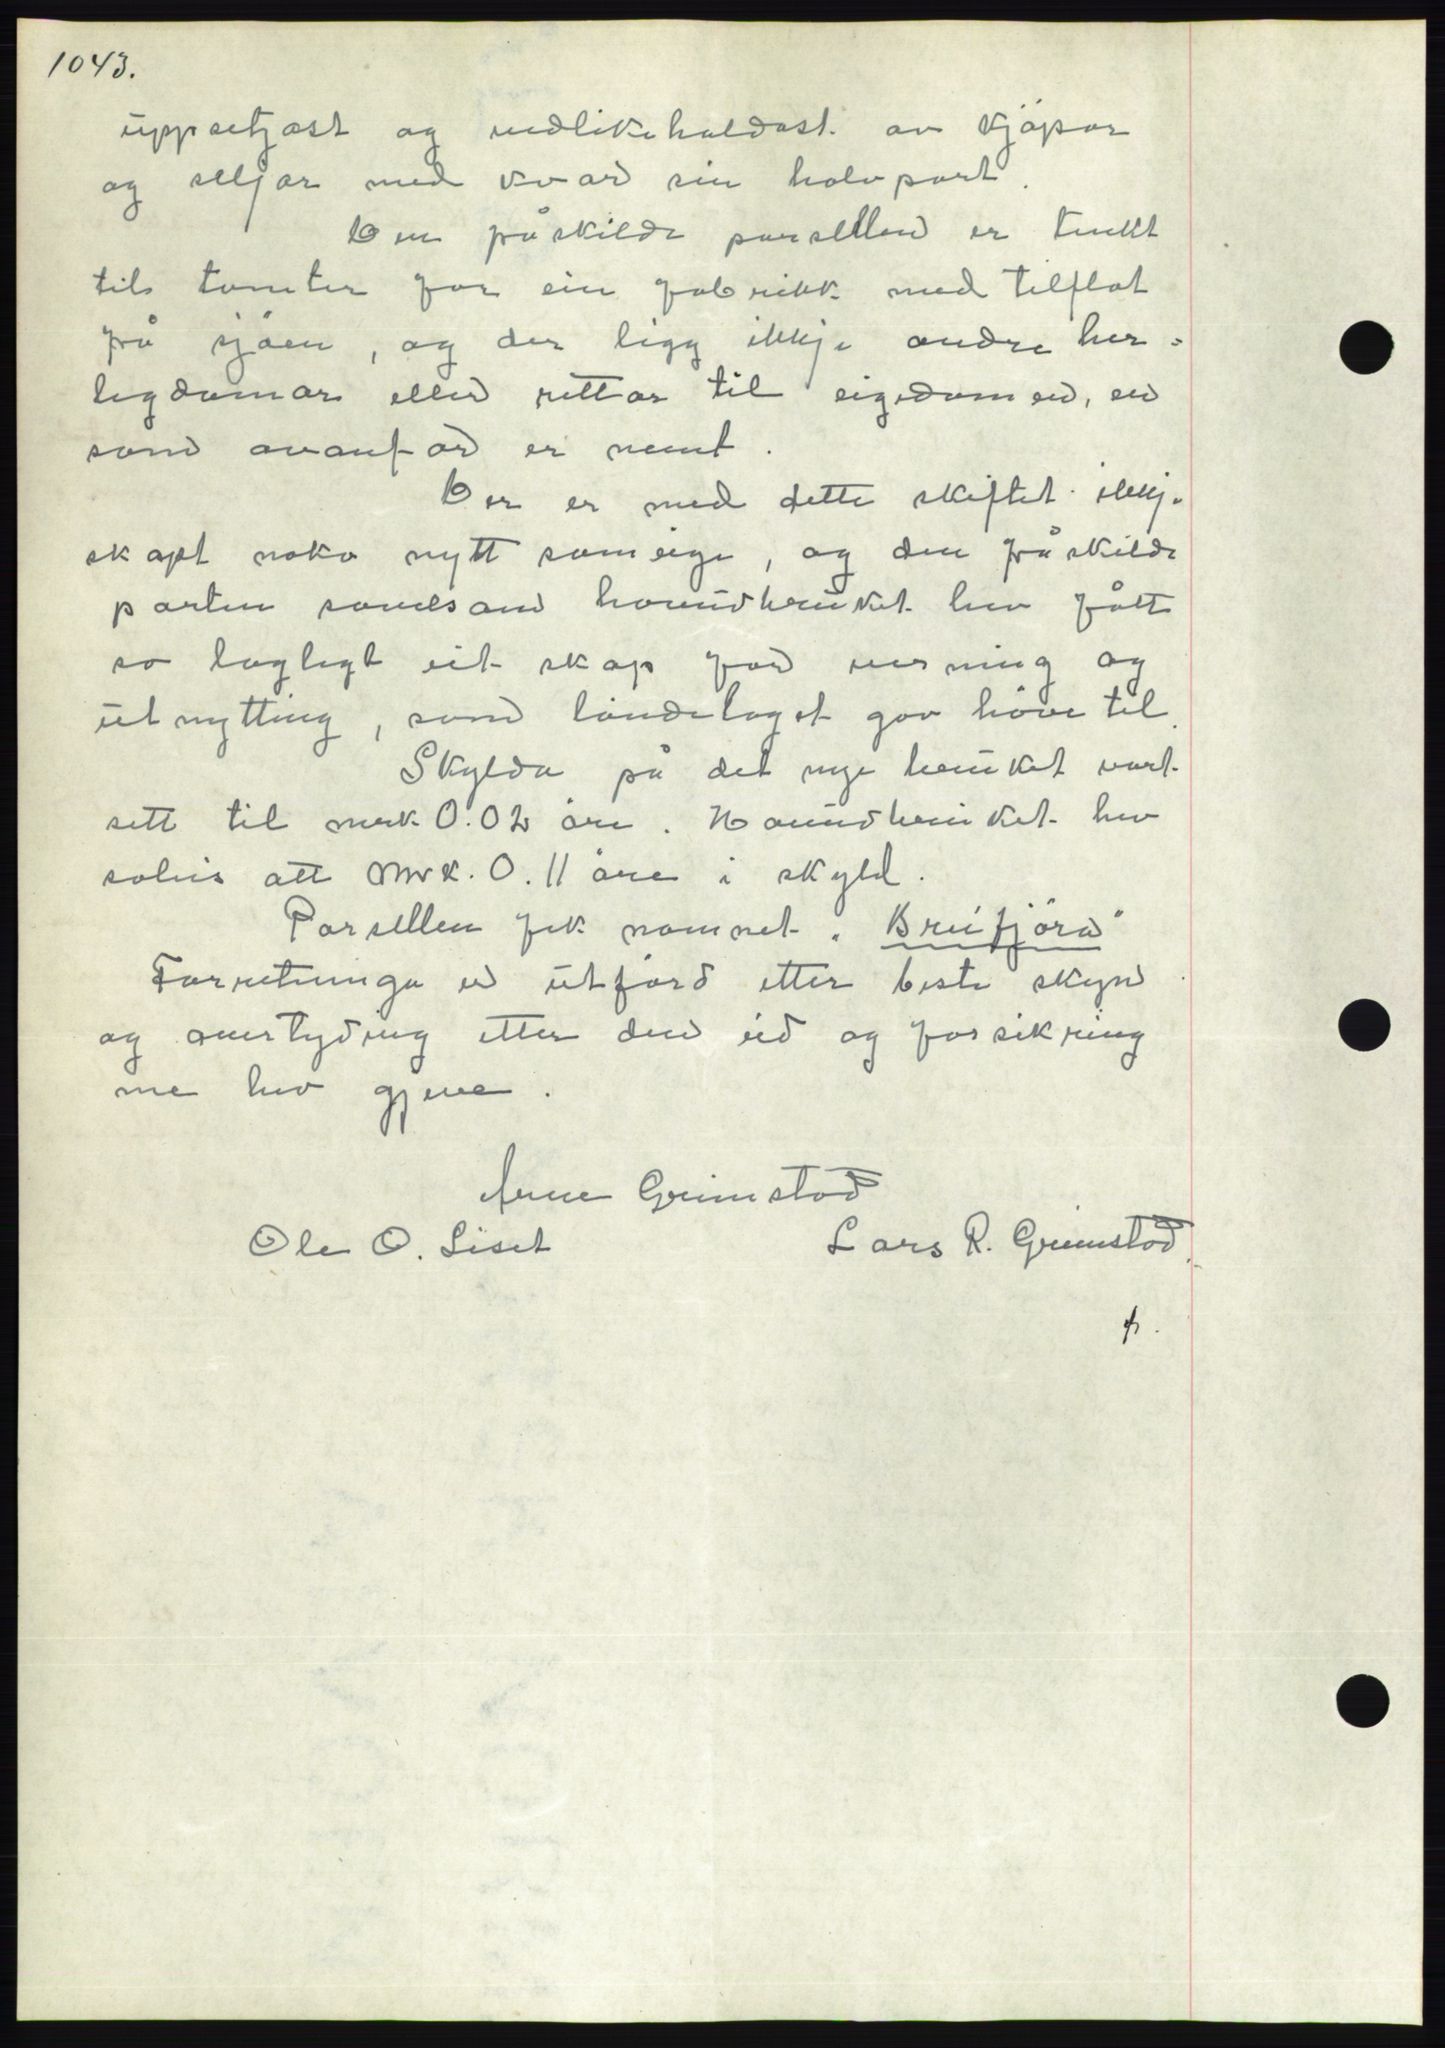 1043.
uppsetjast og vedlikehaldast av kjöpar
og seljar med kvar sin halvpart.
Den fråskilde parsellen er tenkt
til tomter for ein fabrikk med tilflot
frå sjöen, og der ligg ikkje andre her-
legdomar eller rettar til eigedomen, en
som ovanfor er nemt.
Der er med dette skiftet ikkje
skapt noko nytt sameige, og den fråskilde
parten sovelsom hovudbruket hev fått
so laglegt eit skap for  og
utnytting, som lændelaget gav höve til.
Skylda på det nye bruket vart
sett til mrk 0.02 öre. Hovudbruket hev
soleis att Mrk. 0.11 öre i skyld.
Parsellen fek namnet „Brufjöra"
Forretninga er utförd etter beste skyn
og overtyding etter den eid og forsikring
me hev gjeve.
Arne Grimstad
Ole O. Liset Lars R. Grimstad.